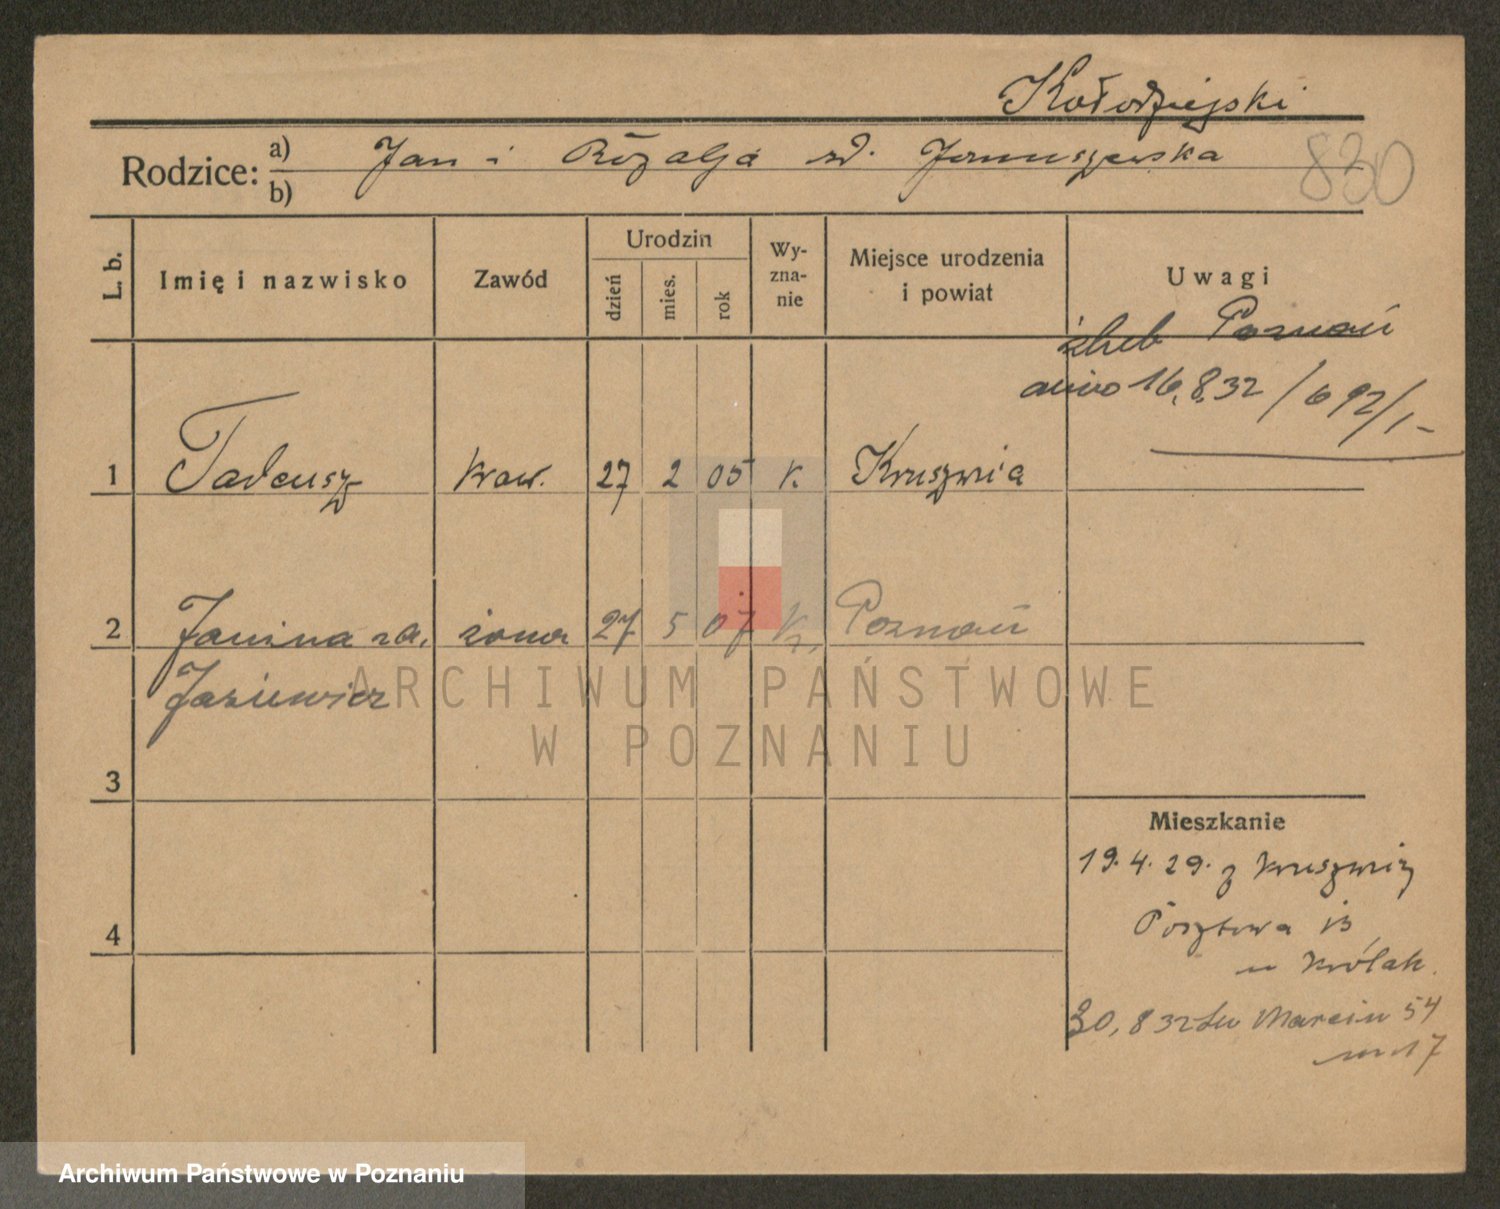 Kołodziejski
Rodzice: a) Jan i Rozalja zd. Januszewska
b)
830
L. b.
Imię i nazwisko
Zawód
Urodzin
dzień
mies.
rok
Wy-
zna-
nie
Miejsce urodzenia
i powiat
Uwagi
ślub Poznań
16.8.32 / 692/1-
1 Tadeusz kraw. 27 2 05 k. Kruszwica
2 Janina zd. żona 27 5 07 k. Poznań
Jasiewicz
3
4
Mieszkanie
19.4.29. z Kruszwicy
Pocztowa 13
u Królak.
30.8 32 Św Marcin 54
m 17
ARCHIWUM PAŃSTWOWE
W POZNANIU
Archiwum Państwowe w Poznaniu